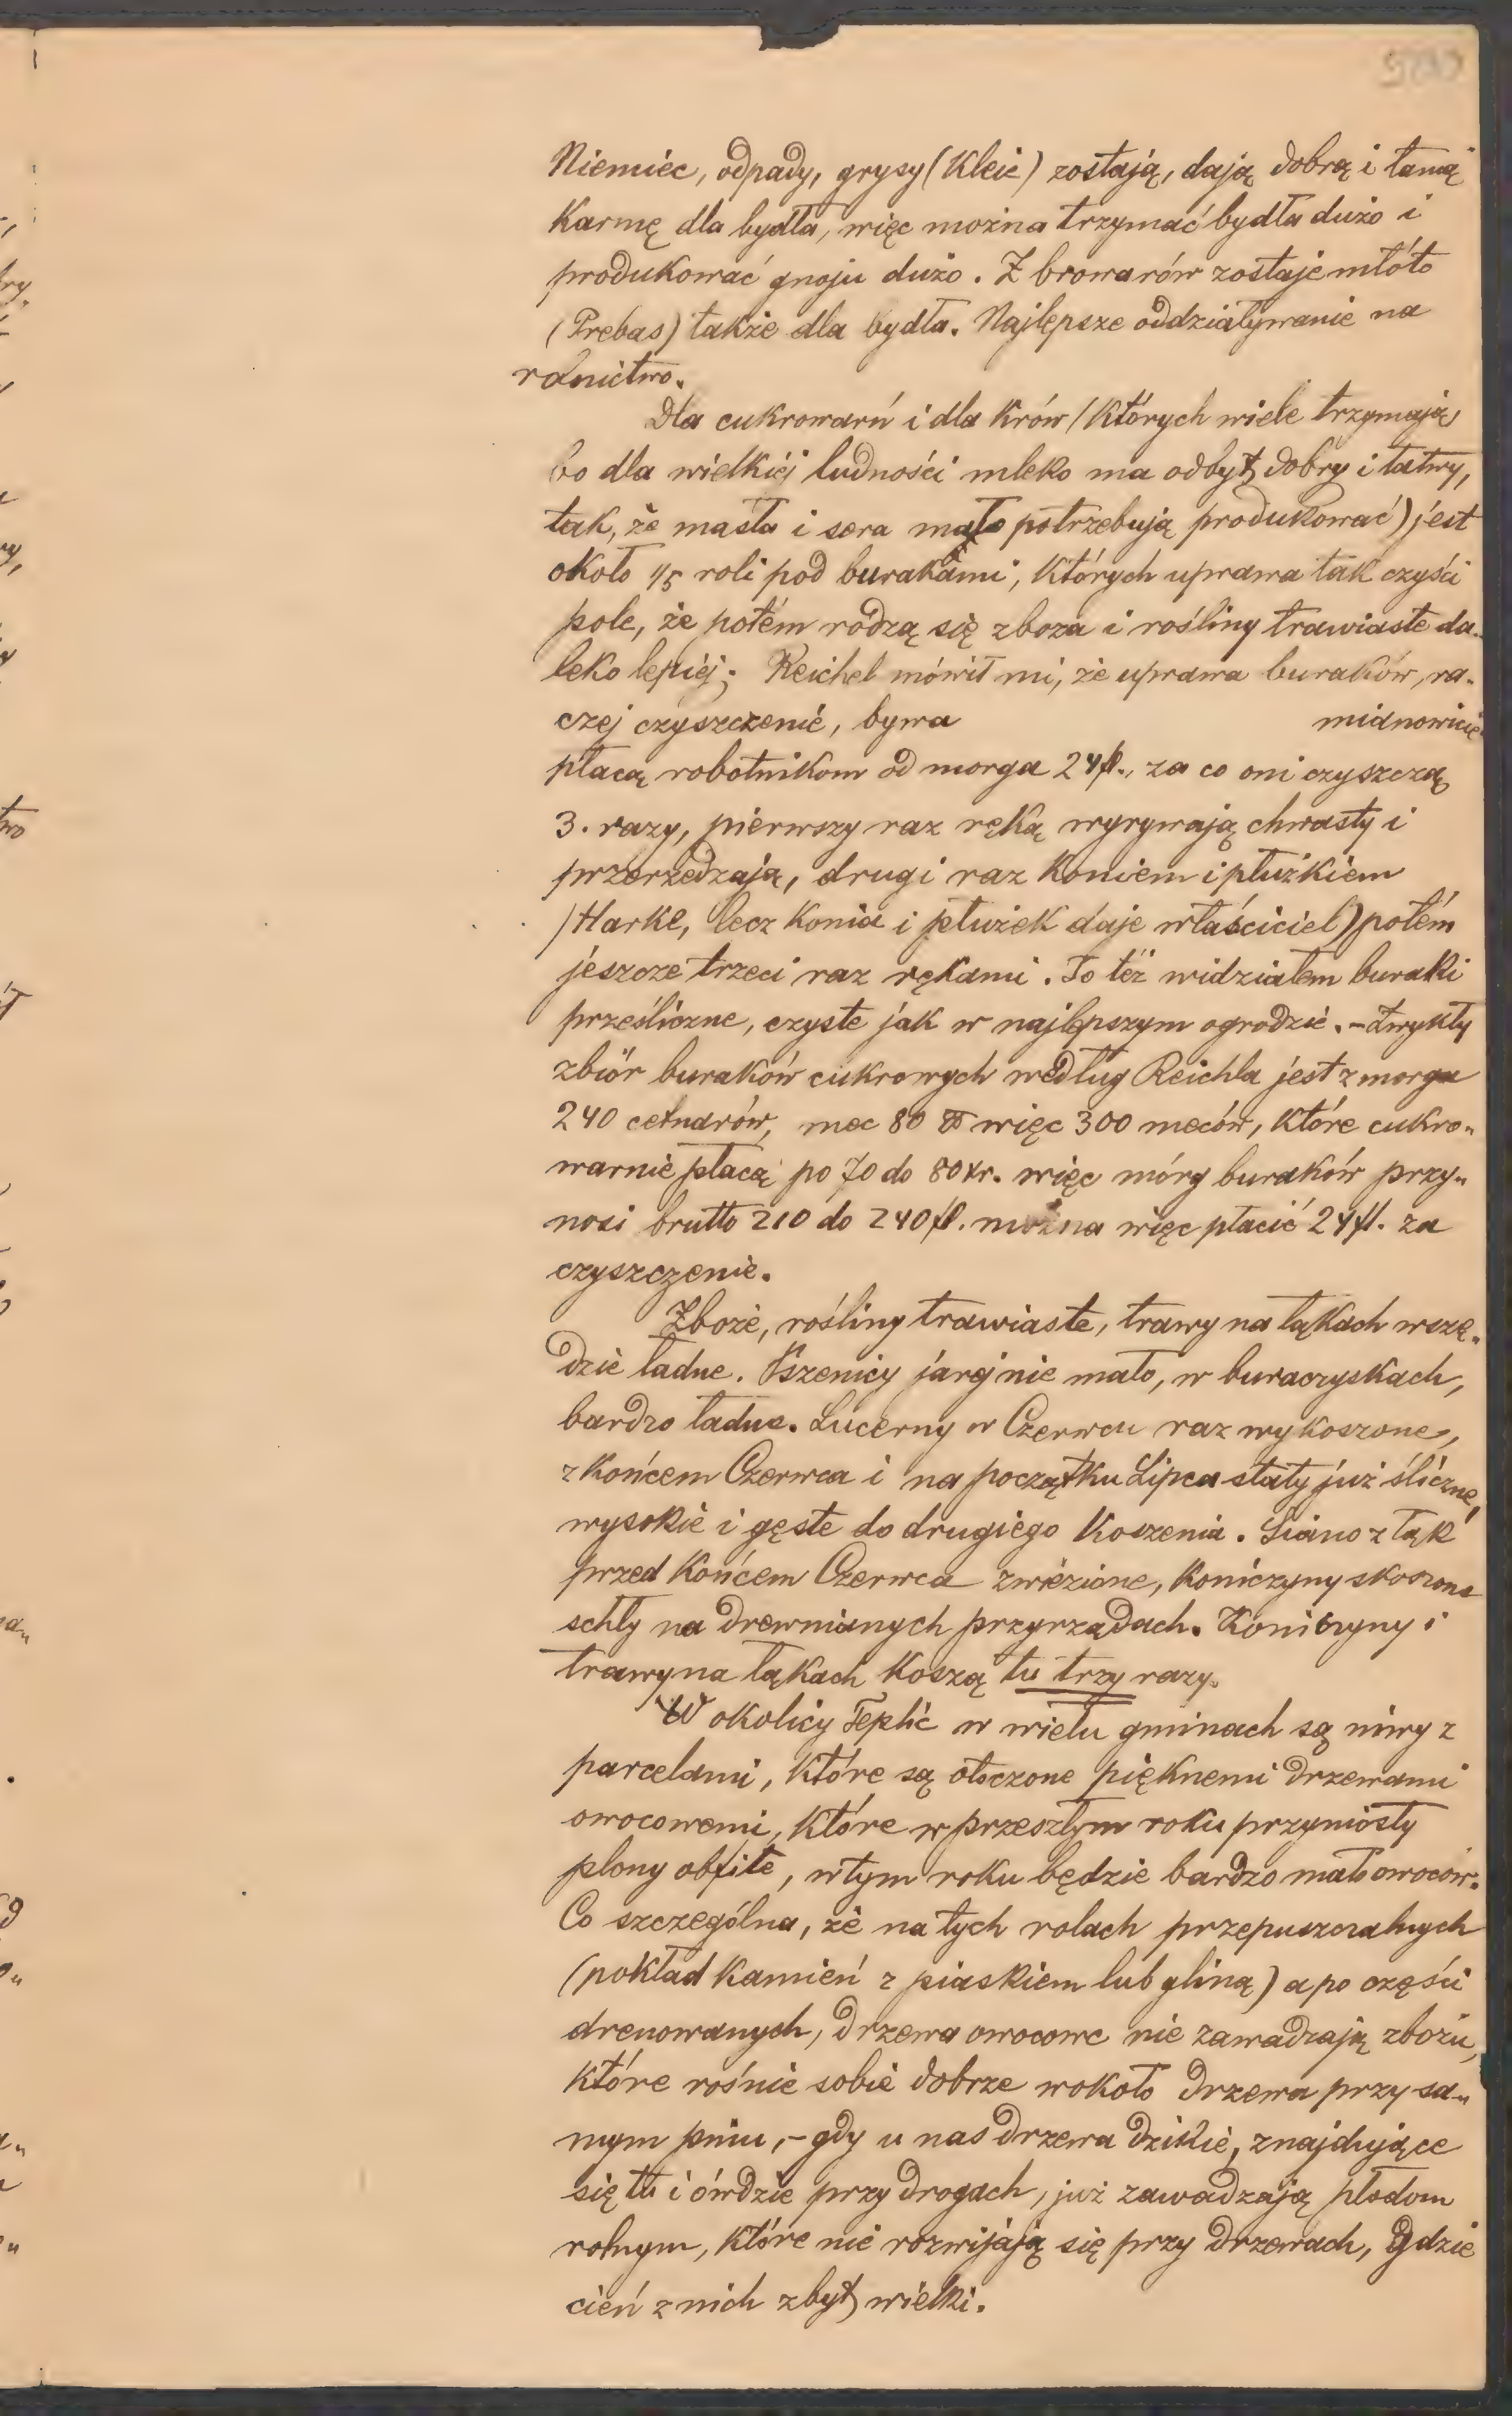 Niemiec, odpady, grysy (Kleie) zostają, dają dobrą i tanią
karmę dla bydła, więc można trzymać bydła dużo i
produkować gnoju dużo. Z browarów zostaje młóto
(Prebas) także dla bydła. Najlepsze oddziaływanie na
rolnictwo.
Dla cukrowarń i dla krów (których wiele trzymają,
bo dla wielkiéj ludności mleko ma odbyt dobry i łatwy,
tak, że masła i sera mało potrzebują produkować) jest
około 1/5 roli pod burakami, których uprawa tak czyści
pole, że potém rodzą się zboża i rośliny trawiaste da-
leko lepiéj; Reichel mówił mi, że uprawa buraków, ra-
czej czyszczenie, bywa mianowicie
płacą robotnikom od morga 24 fl., za co oni czyszczą
3. razy, pierwszy raz ręką wyrywają chwasty i
przerzedzają, drugi raz koniem i płużkiem
(Harke, lecz konia i płużek daje właściciel) potém
jeszcze trzeci raz rękami. To téż widziałem buraki
prześliczne, czyste jak w najlepszym ogrodzie. - Zwykły
zbiór buraków cukrowych według Reichla jest z morga
240 cetnarów, mec 80 ℔ więc 300 meców, które cukro-
warnie płacą po 70 do 80 kr. więc mórg buraków przy-
nosi brutto 210 do 240 fl. można więc płacić 24 fl. za
czyszczenie.
Zboże, rośliny trawiaste, trawy na łąkach wszę-
dzie ładne. Pszenicy jarej nie mało, w buraczyskach,
bardzo ładne. Lucerny w Czerwcu raz wykoszone,
z końcem Czerwca i na początku Lipca stały już śliczne,
wysokie i gęste do drugiego koszenia. Siano z łąk
przed końcem Czerwca zwiezione, koniczyny skoszone
schły na drewnianych przyrządach. Koniczyny i
trawy na łąkach koszą tu trzy razy.
W okolicy Teplic w wielu gminach są niwy z
parcelami, które są otoczone pięknemi drzewami
owocowemi, które w przeszłym roku przyniosły
plony obfite, w tym roku będzie bardzo mało owoców.
Co szczególna, że na tych rolach przepuszczalnych
(pokład kamień z piaskiem lub gliną) a po części
drenowanych, drzewa owocowe nie zawadzają zbożu,
które rośnie sobie dobrze wokoło drzewa przy sa-
mym pniu, - gdy u nas drzewa dzikie, znajdujące
się tu i ówdzie przy drogach, już zawadzają płodom
rolnym, które nie rozwijają się przy drzewach, gdzie
cień z nich zbyt wielki.